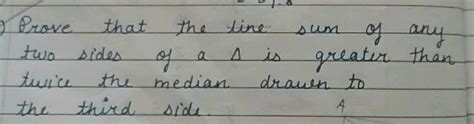 Prove that the line sum of any
two sides of a Δ is greater than
twice the median drawn to
the third side.
A